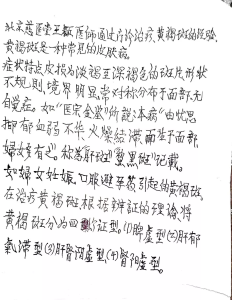 北京藏医堂王毅医师通过疗诊治疗黄褐斑的经验
黄褐斑是一种常见的皮肤病。
症状特点皮损为淡褐至深褐色的斑片形状
不规则,境界明显常对称分布于面部无
自觉症。如"医宗金鉴"所說"本病"由忧思
抑郁血弱不华,火燥结滞而生于面部
妇女有之。称为"肝斑""黧黑斑"记载。
如妇女妊娠、口服避孕药引起的黄褐斑,
在治疗黄褐斑根据辨証的理论,將
黄褐斑分为四型证型。(1)脾虚型(2)肝郁
氣滞型(3)肝肾阴虚型,(4)腎阳虚型。